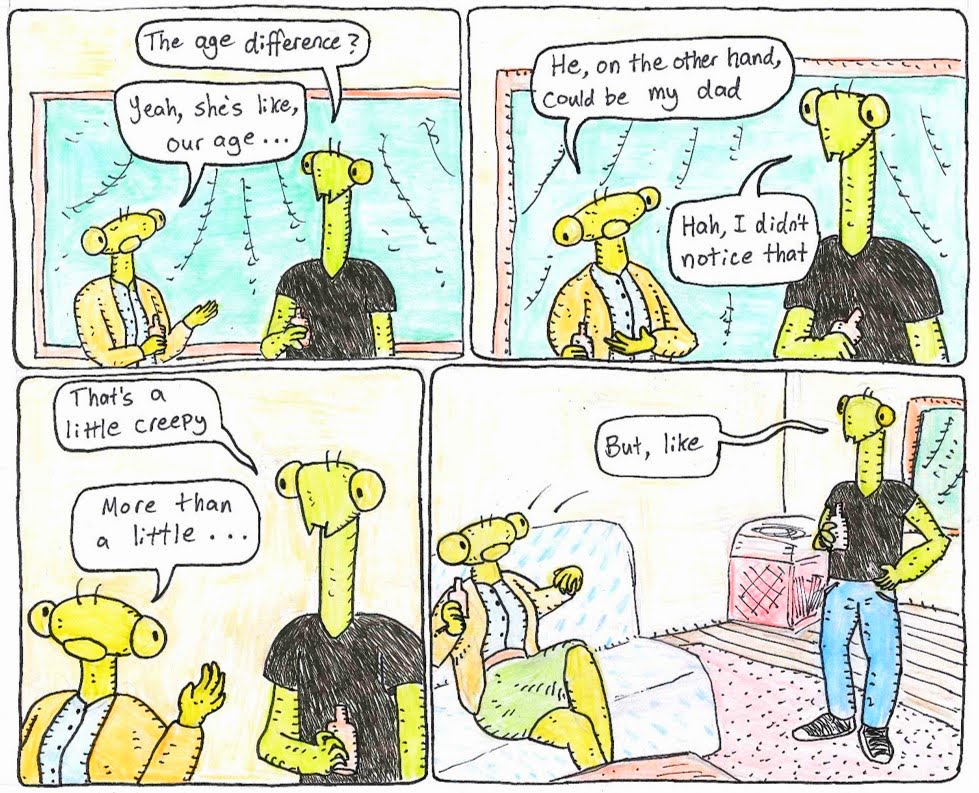 The age difference?
Yeah, she's like,
our age...
He, on the other hand,
could be my dad
Hah, I didn't
notice that
That's a
little creepy
More than
a little...
But, like